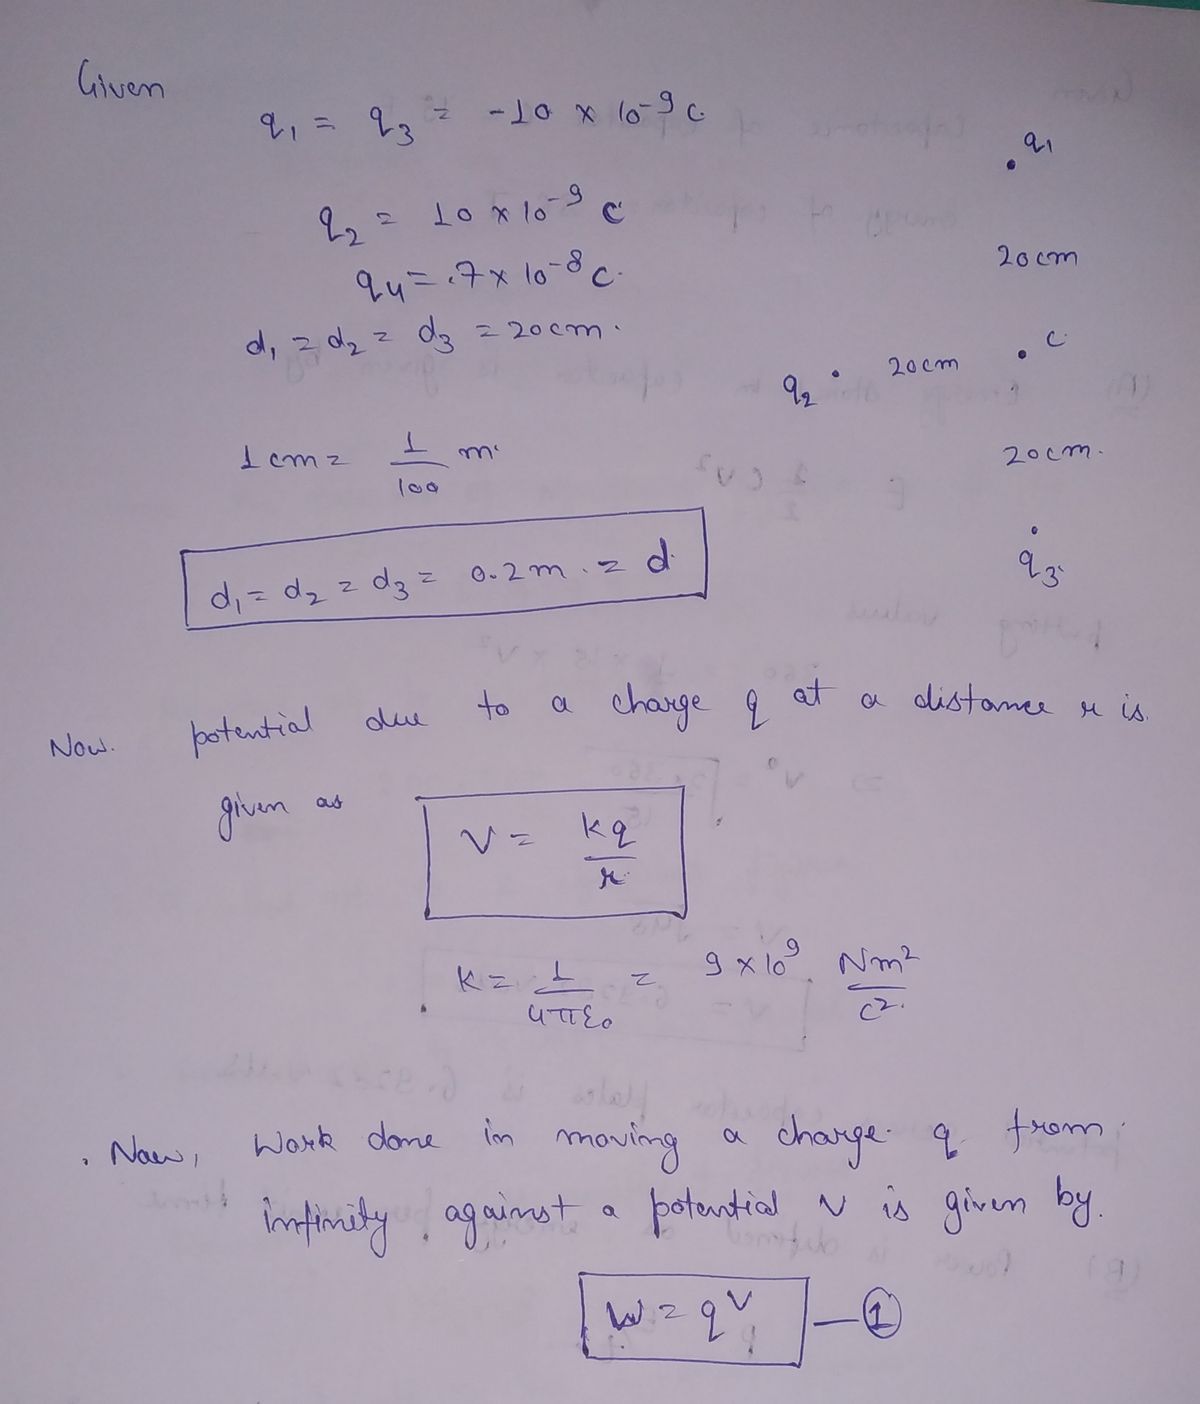 Given
q₁ = q₃ = -10 × 10⁻⁹ C.
q₂ = 10 × 10⁻⁹ C
q₄ = .7 × 10⁻⁸ C.
d₁ = d₂ = d₃ = 20cm.
1 cm = 1/100 m.
d₁ = d₂ = d₃ = 0.2m. = d.
q₁
20cm
q₂ 20cm C
20cm.
q₃.
Now. potential due to a charge q at a distance r is.
given as
V = kq/r
K = 1/4πε₀ = 9 × 10⁹ Nm²/C².
. Now, Work done in moving a charge. q. from.
infinity against a potential V is given by.
W = qV — ①